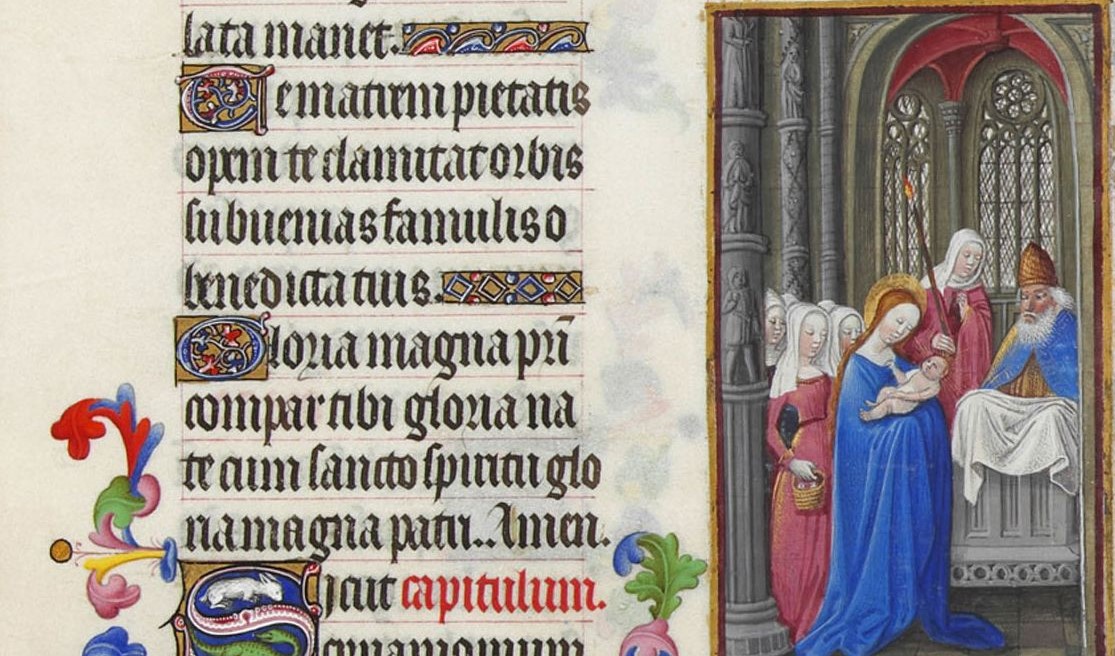 lata manet.
Te matrem pietatis
opem te clamitat orbis
subuenias famulis o
benedicta tuis.
Gloria magna pri̅
compar tibi gloria na
te cum sancto spiritu glo
ria magna patri. Amen.
Sicut capitulum.